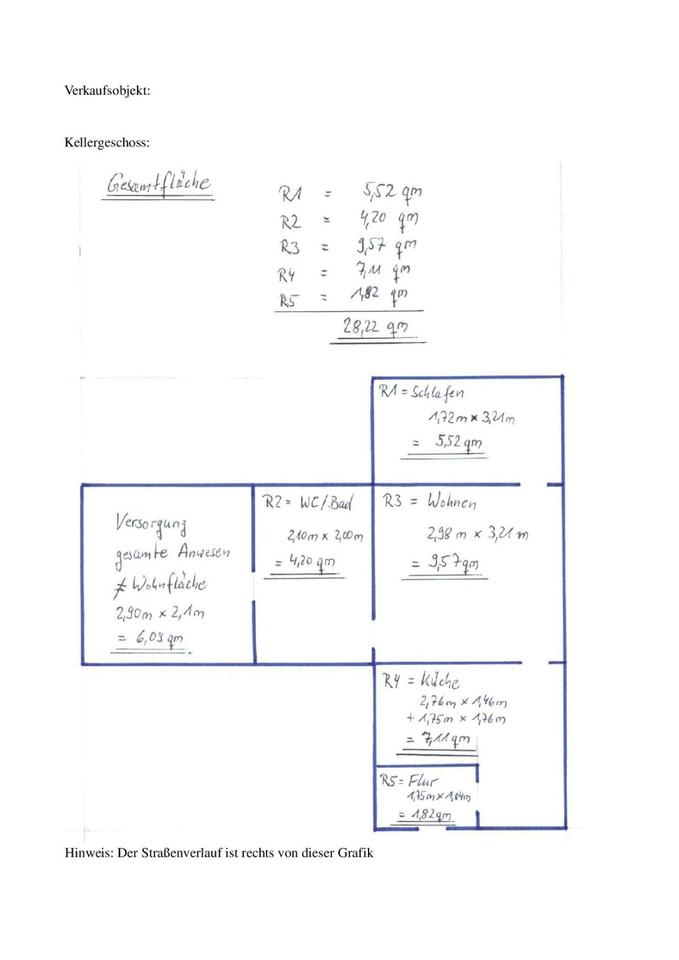 Verkaufsobjekt:
Kellergeschoss:
Gesamtfläche
R1 = 5,52 qm
R2 = 4,20 qm
R3 = 9,57 qm
R4 = 7,11 qm
R5 = 1,82 qm
28,22 qm
R1 = Schlafen
1,72m x 3,21m
= 5,52 qm
Versorgung
gesamte Anwesen
≠ Wohnfläche
2,90m x 2,1m
= 6,09 qm
R2 = WC/Bad
2,10m x 2,00m
= 4,20 qm
R3 = Wohnen
2,98 m x 3,21 m
= 9,57qm
R4 = Küche
2,76m x 1,46m
+ 1,75m x 1,76m
= 7,11qm
R5 = Flur
1,75m x 1,04m
= 1,82qm
Hinweis: Der Straßenverlauf ist rechts von dieser Grafik